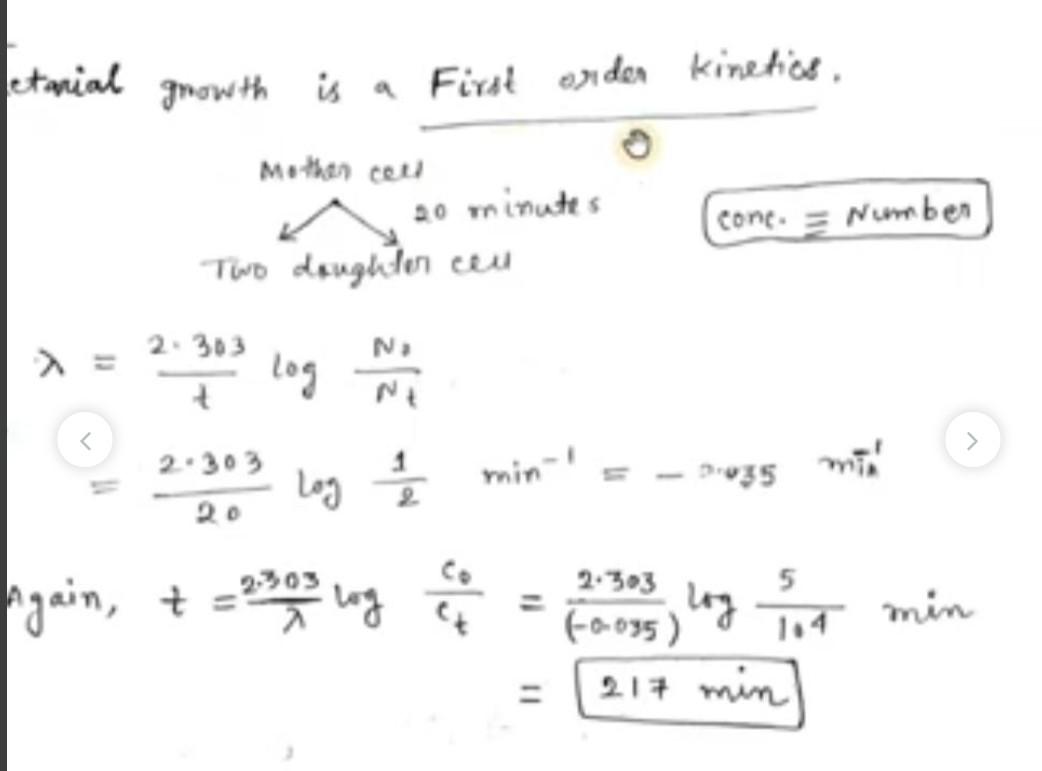 etarial growth is a First order kinetics.
Mother cell
20 minutes
Two daughter cell
conc. ≡ Number
λ = 2.303/t log N₀/Nt
= 2.303/20 log 1/2 min⁻¹ = - 0.035 min⁻¹
Again, t = 2.303/λ log C₀/Ct = 2.303/(-0.035) log 5/10⁴ min
= 217 min